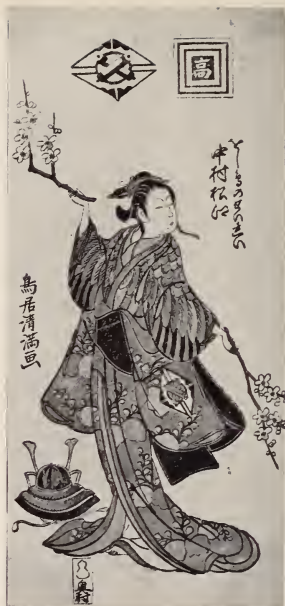 高
中村松江
鳥居清満画
奥村